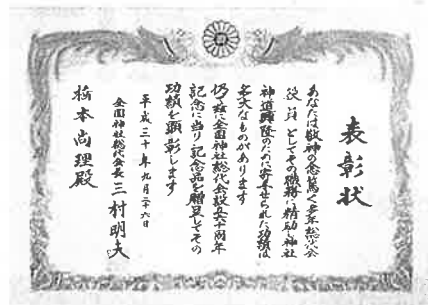 表彰状
あなたは敬神の念篤く多年総代会
役員としてその職務に精励し神社
神道興隆のために寄与せられた功績は
多大なものがあります
仍て茲に全国神社総代会設立六十周年
記念に当り記念品を贈呈してその
功績を顕彰します
平成三十年九月二十六日
全国神社総代会会長 三村明夫
橋本尚理殿